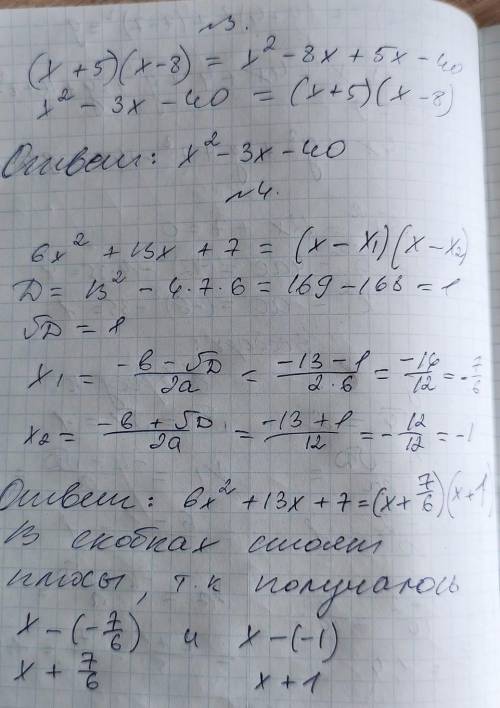 №3.
(x+5)(x-8) = x² - 8x + 5x - 40
x² - 3x - 40 = (x+5)(x-8)
Ответ: x² - 3x - 40
№4.
6x² + 13x + 7 = (x - x₁)(x - x₂)
D = 13² - 4·7·6 = 169 - 168 = 1
√D = 1
x₁ = (-b - √D)/2a = (-13 - 1)/(2·6) = -14/12 = -7/6
x₂ = (-b + √D)/2a = (-13 + 1)/12 = -12/12 = -1
Ответ: 6x² + 13x + 7 = (x + 7/6)(x + 1)
В скобках стоят
плюсы, т.к получалось
x - (-7/6) и x - (-1)
x + 7/6 x + 1